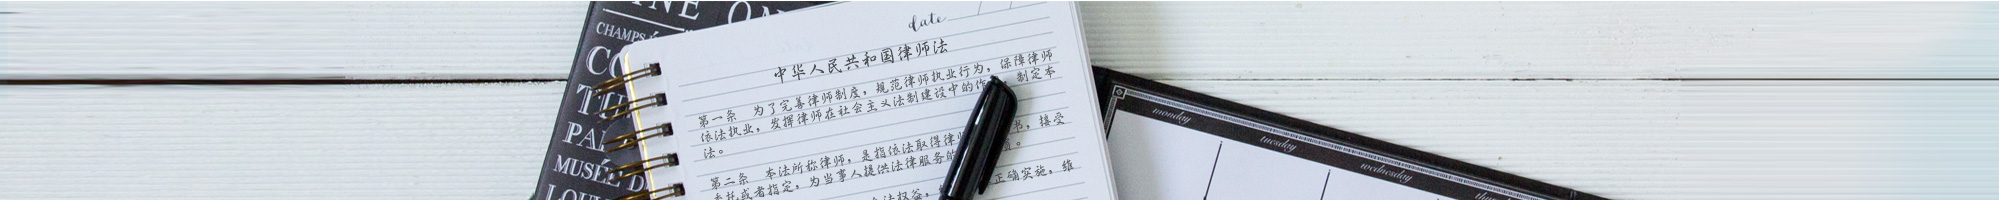 NE
CHAMPS
CO
PAR
MUSÉE D
LOUV
date
中华人民共和国律师法
第一条 为了完善律师制度，规范律师执业行为，保障律师
依法执业，发挥律师在社会主义法制建设中的作 制定本
法。
第二条 本法所称律师，是指依法取得律师 书，接受
委托或者指定，为当事人提供法律服务的 。
法权益， 正确实施，维
monday
tuesday
wednesday